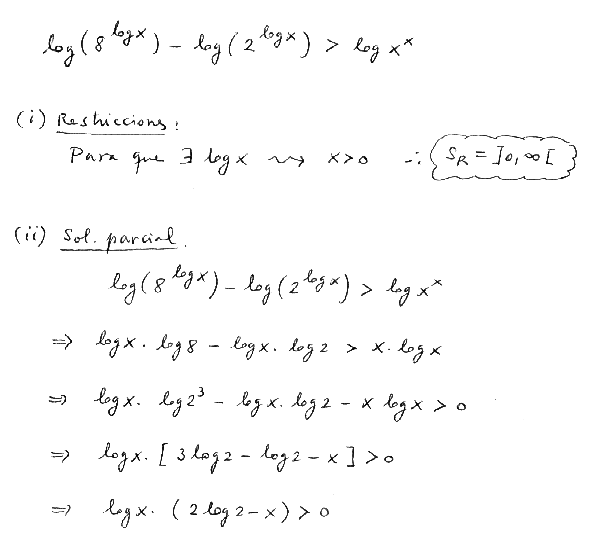 log(8^logx) - log(2^logx) > log x^x
(i) Restricciones:
Para que ∃ log x ⇝ x>0 ∴ S_R = ]0,∞[
(ii) Sol. parcial.
log(8^logx) - log(2^logx) > log x^x
⇒ logx · log8 - logx · log2 > x · logx
⇒ logx · log2^3 - logx · log2 - x logx > 0
⇒ logx · [3log2 - log2 - x] > 0
⇒ logx · (2log2 - x) > 0